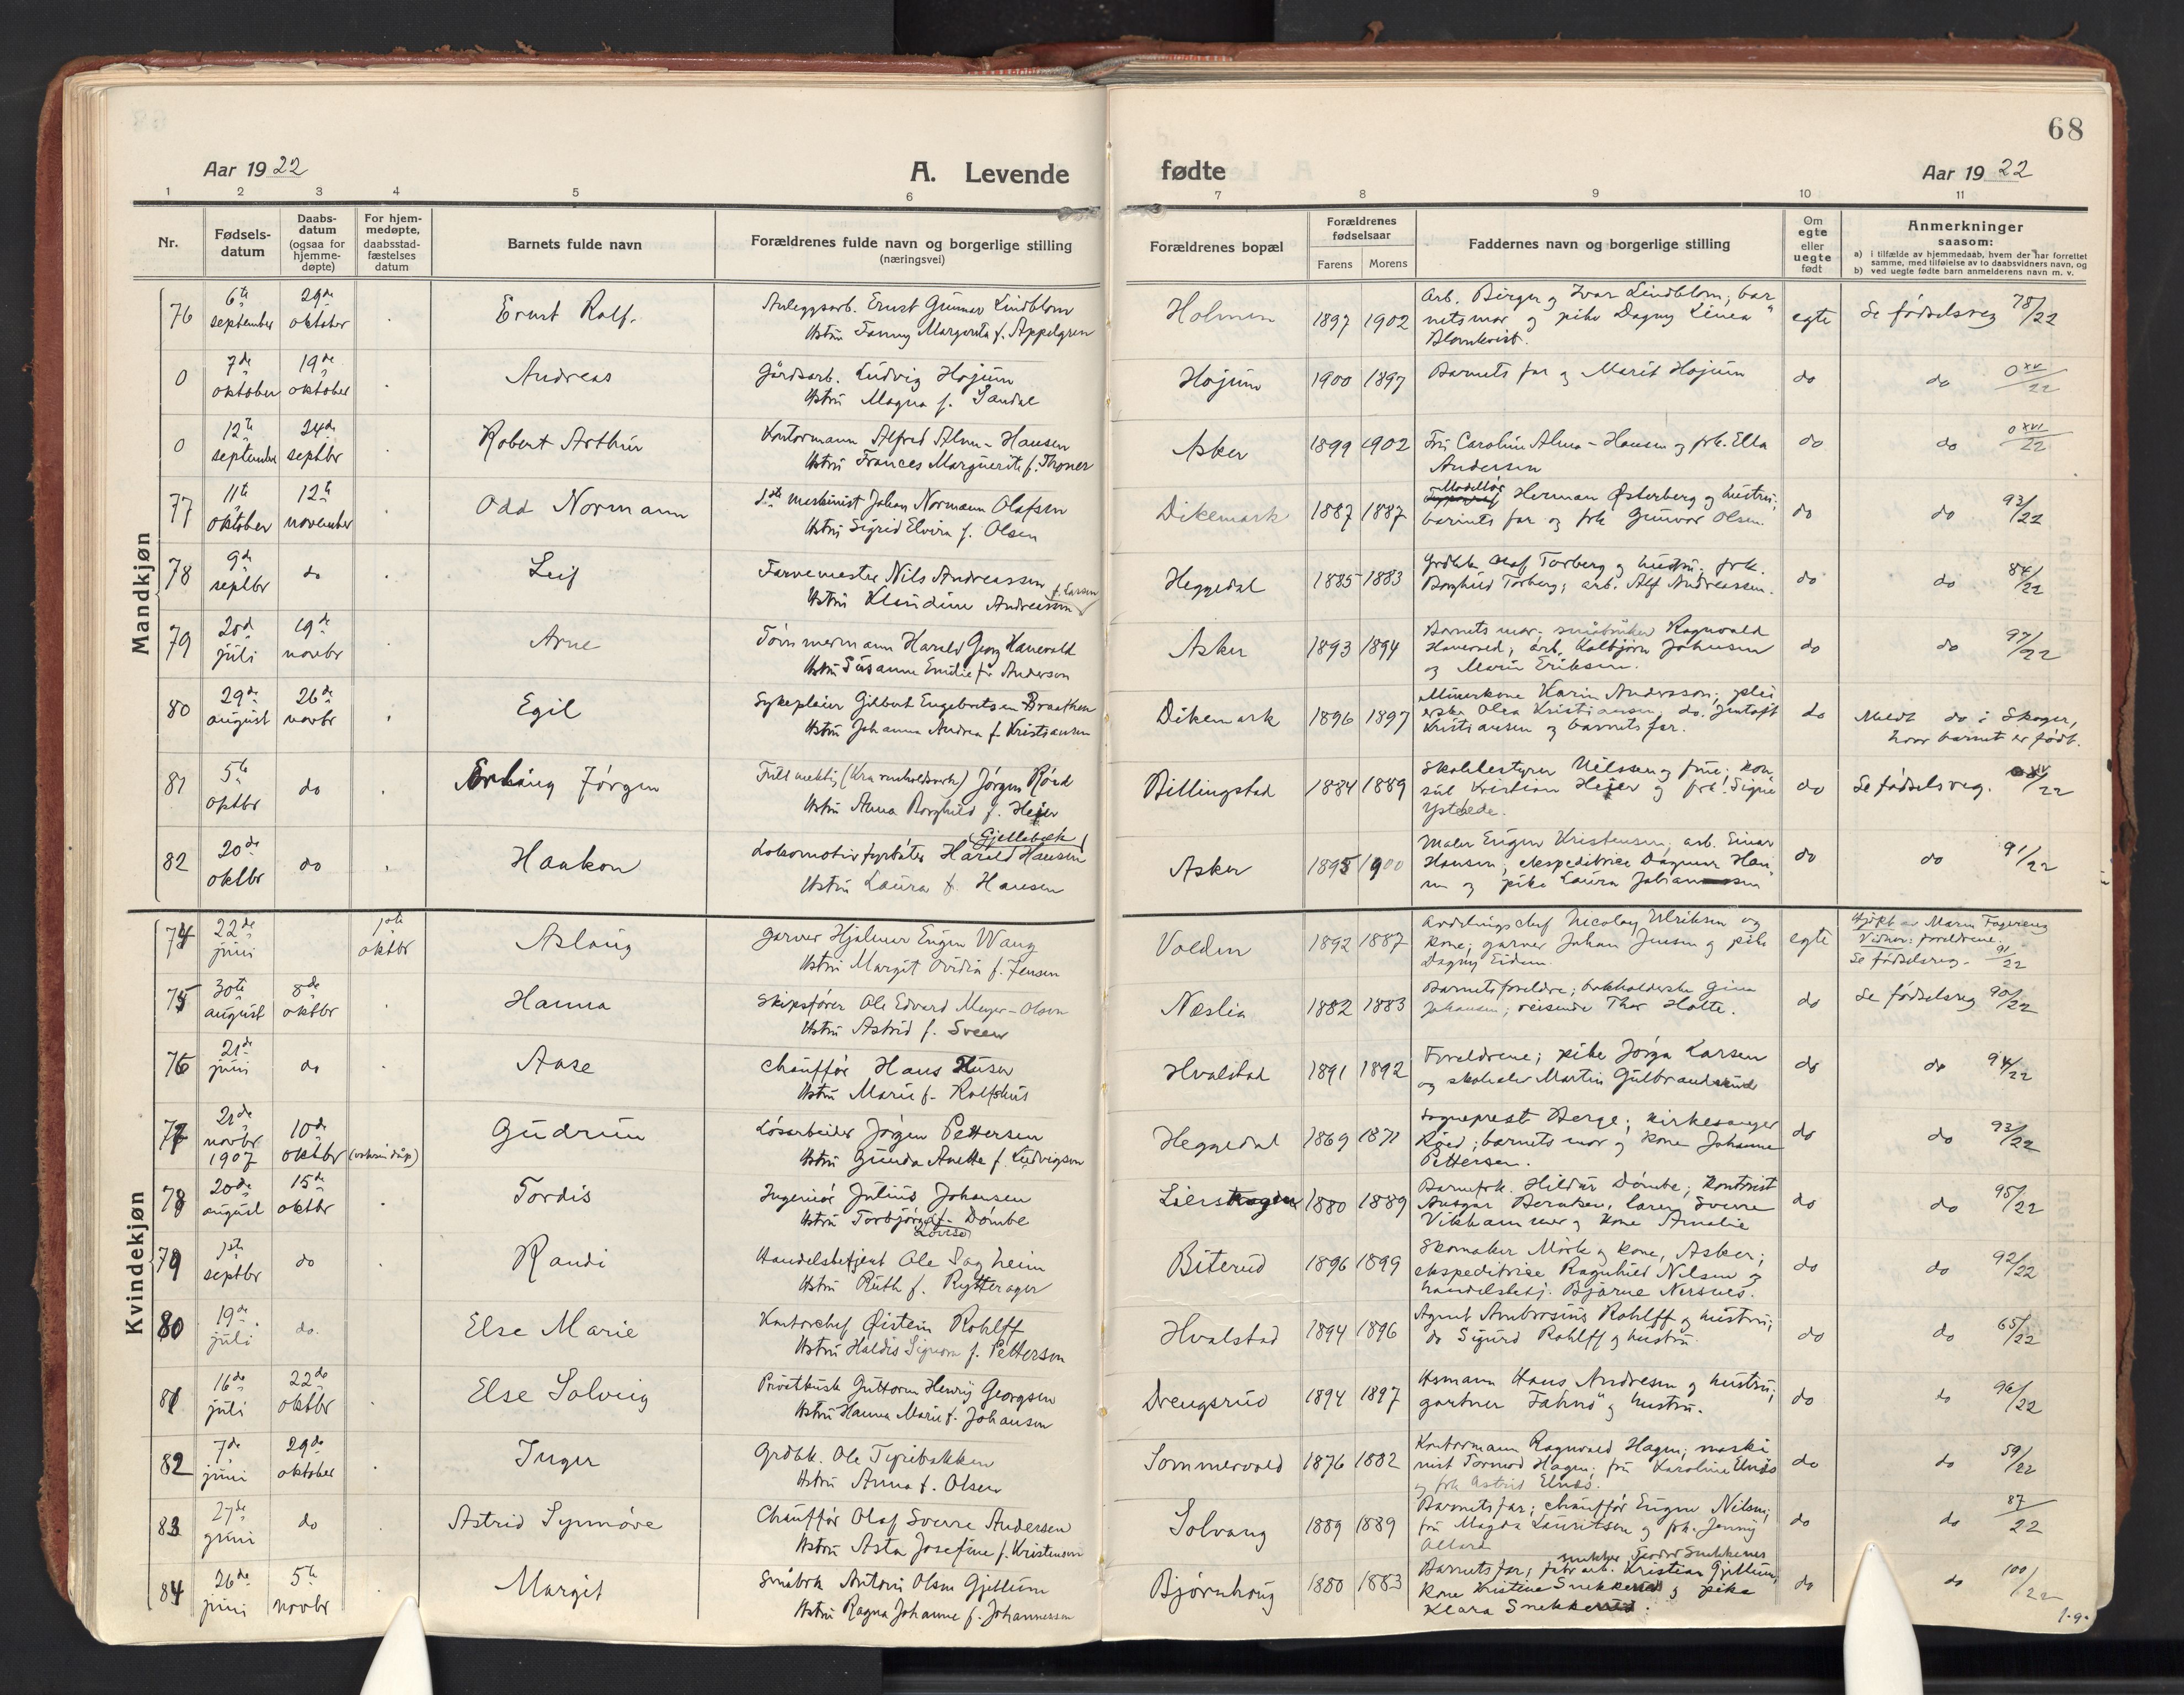 68
Aar 1922
A. Levende
fødte
Aar 1922
1 2 3 4 5 6 7 8 9 10 11
Nr.
Fødsels-
datum
Daabs-
datum
(ogsaa for
hjemme-
døpte)
For hjem-
medøpte,
daabsstad-
fæstelses
datum
Barnets fulde navn
Forældrenes fulde navn og borgerlige stilling
(næringsvei)
Forældrenes bopæl
Forældrenes
fødselsaar
Farens Morens
Faddernes navn og borgerlige stilling
Om
egte
eller
uegte
født
Anmerkninger
saasom:
a) i tilfælde av hjemmedaab, hvem der har forrettet
samme, med tilføielse av to daabsvidners navn, og
b) ved uegte fødte barn anmelderens navn m. v.
Mandkjøn
76 6te september 29de oktober Ernst Rolf.
Anleggsarb. Ernst Gunnar Lindblom
Hstru Fanny Margareta f. Appelgren
Holmen 1897 1902
Arb. Birger og Ivar Lindblom, bar
nets mor og pike Dagny Linea
Blomkvist.
egte Se fødselsreg 78/22
0 7de oktober 19de oktober Andreas
Gårdsarb. Ludvig Højum
Hstru Magna f. Sandal
Højum 1900 1897
Barnets far og Marit Højum
do do 0 xv/22
0 12te september 24de septbr Robert Arthur
Kontormann Alfred Alm-Hansen
Hstru Frances Marguerite f. Throner
Asker 1899 1902
Fru Caroline Alma-Hansen og frk. Ella
Andersen
do do 0 xvi/22
77 11te oktober 12te november Odd Normann
1ste maskinist Johan Normann Olafsen
Hstru Sigrid Elvira f. Olsen
Dikemark 1887 1887
Modellør
Herman Østerberg og hustru;
barnets far og frk Gunvor Olsen.
do do 93/22
78 9de septbr do Leif
Farvemester Nils Andreassen
Hstru Klaudine Andreassen f. Larsen
Heggedal 1885 1883
Grdbk Olaf Torberg og hustru; frk.
Borghild Torberg; arb. Alf Andreassen.
do do 84/22
79 20de juli 19de novbr Arne
Tømmermann Harald Georg Hanevold
Hstru Susanne Emilie f. Anderson
Asker 1893 1894
Barnets mor; småbruker Ragnvald
Haneved, arb. Kolbjørn Johnsen
og Marie Eriksen.
do do 97/22
80 29de august 26de novbr Egil
Sykepleier Gilbert Engebretsen Braathen
Hstru Johanna Andrea f. Kristiansen
Dikemark 1896 1897
Murerkone Karin Andersson; plei
erske Olea Kristiansen, do. Gustaft
Kristiansen og barnets far.
do Meldt do i Skoger,
hvor barnet er født.
81 5te oktbr do Erling Jørgen
Jørgen Røed
Hstru Anna Borghild f. Hejer
Billingstad 1884 1889
Skolebestyrer Nilssen og frue; kon
sul Kristian Hejer og frk. Signe
do Se fødselsreg.
82 20de oktbr do Haakon
Lokomotivfyrbøter Harald Hansen Gjellebæk
Hstru Laura f. Hansen
Asker 1895 1900
Maler Eugen Kristensen, arb. Einar
Hansen, ekspeditrice Dagmar Han
sen og pike Laura Johannessen
do do 91/22
Kvindekjøn
74 22de juni 1ste oktbr Aslaug
Garver Hjalmar Eugen Wang
Hstru Margit Ovidia f. Jensen
Volden 1892 1887
Avdelingschef Nicolay Ulriksen og
kone; garver Johan Jensen og pike
Dagny Eidem.
egte Hjdpt av Maren Fagereng
Vidner: foreldrene.
Se fødselsreg. 91/22
75 30te august 8de oktbr Hanna
Skipsfører Ole Edvard Meyer-Olsen
Hstru Astrid f. Sveen
Neslia 1882 1883
Barnets foreldre; bokholderske Gina
Johansen; reisende Thor Holte.
do Se fødselsreg 90/22
76 21de juni do Aase
Chauffør Hans Huser
Hstru Marie f. Rolfshus
Hvalstad 1891 1892
Foreldrene; pike Jørga Larsen
og skoleelev Martin Gulbrandsrud
do do 94/22
77 21de novbr 1907 10de oktbr (voksendåp) Gudrun
Løsarbeider Jørgen Pettersen
Hstru Gunda Anette f. Ludvigsen
Heggedal 1869 1871
Sogneprest Berge; kirkesanger
Røed; barnets mor og kone Johanne
Pettersen.
do do 93/22
78 20de august 15de oktbr Tordis
Ingeniør Julius Johansen
Hstru Torbjørg Lovise f. Dømbe
Lierskogen 1880 1889
Barnefrk. Hildur Dømbe; kontorist
Ansgar Berntsen, lærer Sverre
Vikhammer og kone Amalie
do do 95/22
79 1ste septbr do Randi
Handelsbetjent Ole Sagheim
Hstru Ruth f. Rytterager
Biterud 1896 1899
Skomaker Mørk og kone, Asker;
ekspeditrise Ragnhild Nilsen og
handelsbetj. Bjarne Nersnes.
do do 92/22
80 19de juli do. Else Marie
Kontorchef Øistein Rohlff
Hstru Haldis Signora f. Petterson
Hvalstad 1894 1896
Agent Ambrosius Rohlff og hustru;
do Sigurd Rohlff og hustru.
do do 65/22
81 16de juli 22de oktbr Else Solveig
Privatkusk Guttorm Henry Georgsen
Hstru Hanna Marie f. Johansen
Drengsrud 1894 1897
Husmann Hans Andresen og hustru;
gartner Fahnø og hustru.
do do 96/22
82 7de juni 29de oktober Inger
Grdbk. Ole Tyribakken
Hstru Anna f. Olsen
Sommervold 1876 1882
Kontormann Ragnvald Hagen; maski
nist Tormod Hagen; fru Karoline Elnæs
og frk Astrid Elnæs.
do do 59/22
83 27de juni do Astrid Synnøve
Chauffør Olaf Sverre Andersen
Hstru Asta Josefine f. Kristensen
Solvang 1889 1889
Barnets far; chauffør Eugen Nilsen;
fru Magda Lauritsen og frk. Jenny
do do 87/22
84 26de juni 5te novbr Margit
Småbrk Anton Olsen Gjellum
Hstru Ragna Johanne f. Johannessen
Bjørnhaug 1880 1883
Barnets far; fabr.arb. Kristian Gjellum;
kone Kristine Snekkenes og pike
Klara Snekkenes.
do do 100/22